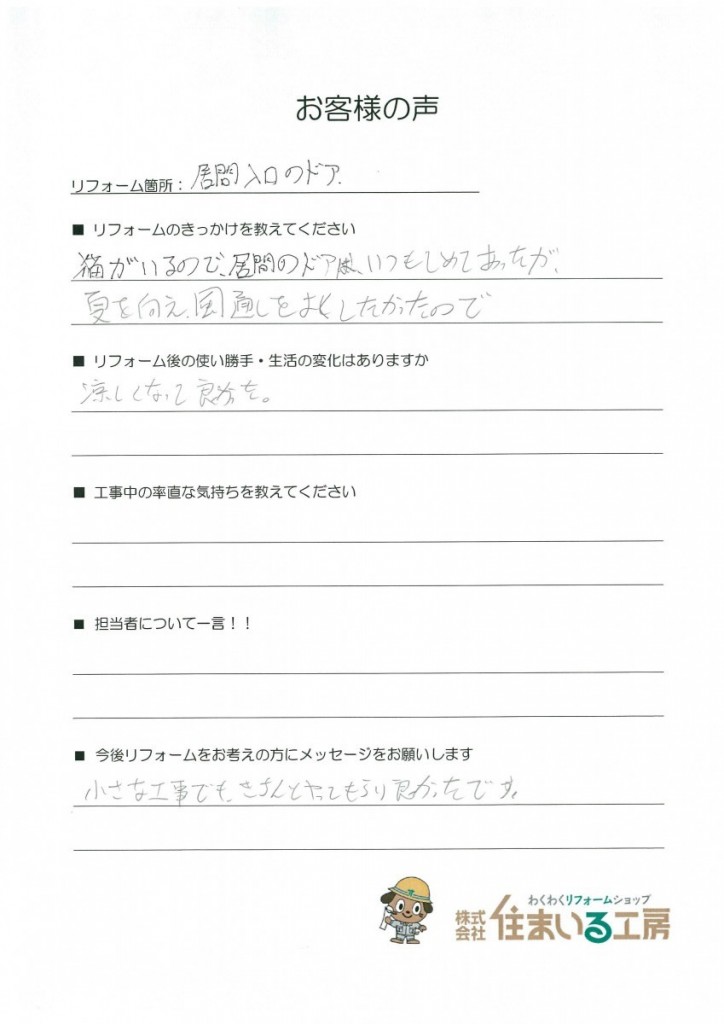 お客様の声
リフォーム箇所：居間入口のドア.
■ リフォームのきっかけを教えてください
猫がいるので、居間のドアは、いつもしめてあったが、
夏を向え、風通しをよくしたかったので
■ リフォーム後の使い勝手・生活の変化はありますか
涼しくなって良かった。
■ 工事中の率直な気持ちを教えてください
■ 担当者について一言！！
■ 今後リフォームをお考えの方にメッセージをお願いします
小さな工事でも、きちんとやってもらい良かったです。
わくわくリフォームショップ
株式会社 住まいる工房